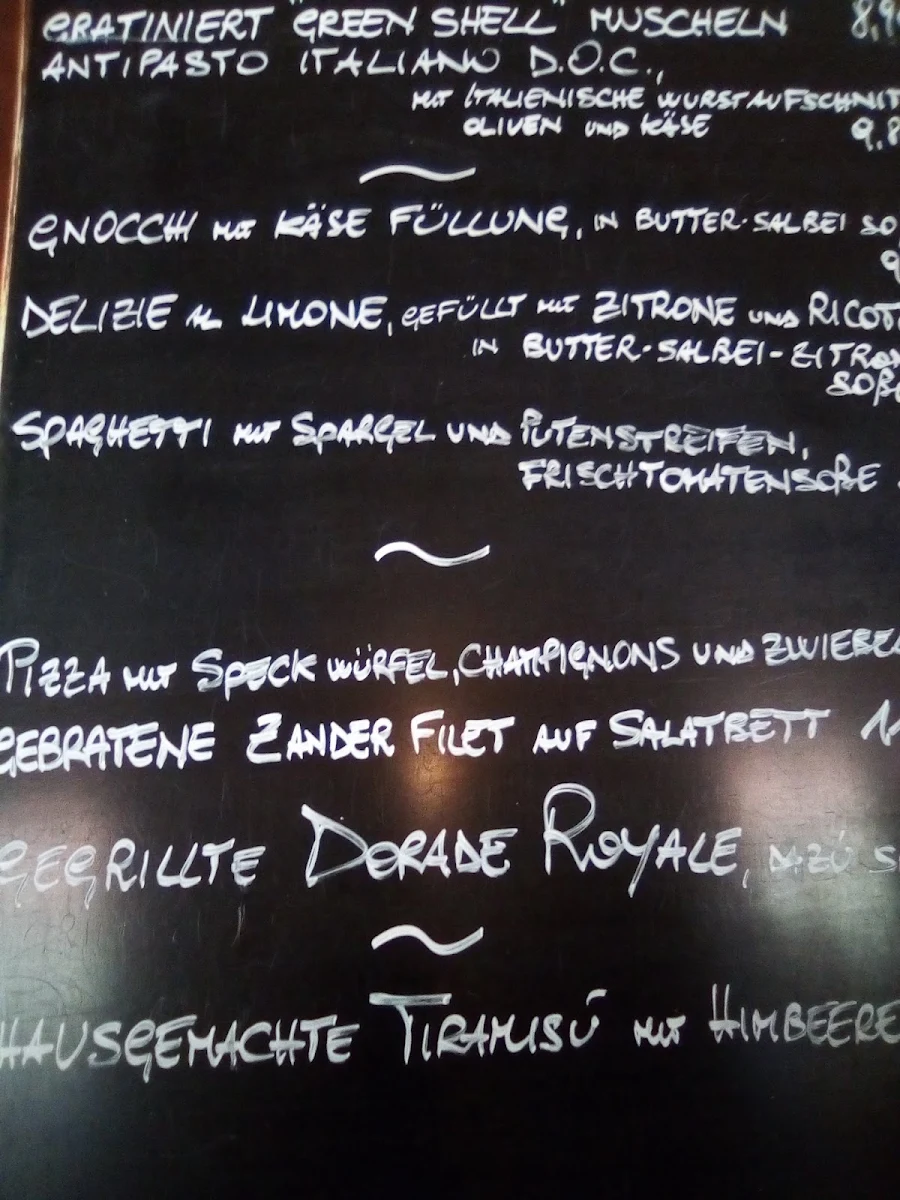 GRATINIERT "GREEN SHELL" MUSCHELN 8,9
ANTIPASTO ITALIANO D.O.C.,
MIT ITALIENISCHE WURSTAUFSCHNIT
OLIVEN UND KÄSE 9,8
~
GNOCCHI MIT KÄSE FÜLLUNG, IN BUTTER-SALBEI SO
9
DELIZIE AL LIMONE, GEFÜLLT MIT ZITRONE UND RICOT
IN BUTTER-SALBEI-ZITRON
SOßE
SPAGHETTI MIT SPARGEL UND PUTENSTREIFEN,
FRISCHTOMATENSOßE
~
PIZZA MIT SPECK WÜRFEL, CHAMPIGNONS UND ZWIEBEL
GEBRATENE ZANDER FILET AUF SALATBETT 11
GEGRILLTE DORADE ROYALE, DAZÚ S
~
HAUSGEMACHTE TIRAMISÚ MIT HIMBEERE